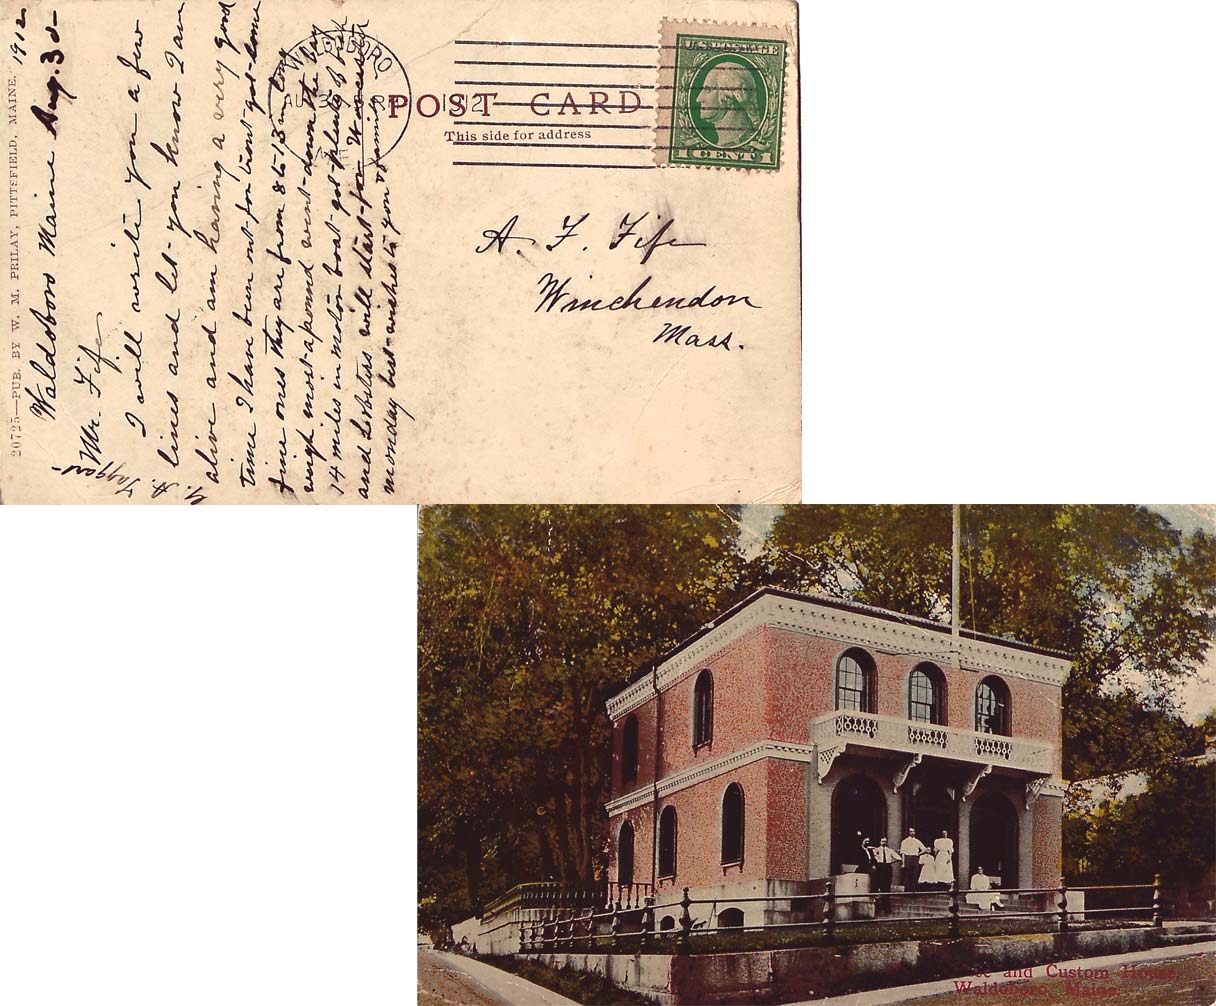 20725—PUB. BY W. M. PRILAY, PITTSFIELD, MAINE.
1912
Waldoboro Maine Aug. 3d-
Mr. Fife
I will write you a few
lines and let you know I am
alive and am having a very good
time I have been out for trout got some
fine ones they are from 8 to 13 in long
weigh most a pound went down the bay
14 miles in motor boat got plenty of fish
and Lobsters will start for Worcester
monday best wishes to you & family
G. A. Taggard
WALDOBORO
AUG 3
1912
POST CARD
This side for address
U.S. POSTAGE
1 CENT 1
A. F. Fife
Winchendon
Mass.
and Custom House,
Waldoboro, Maine